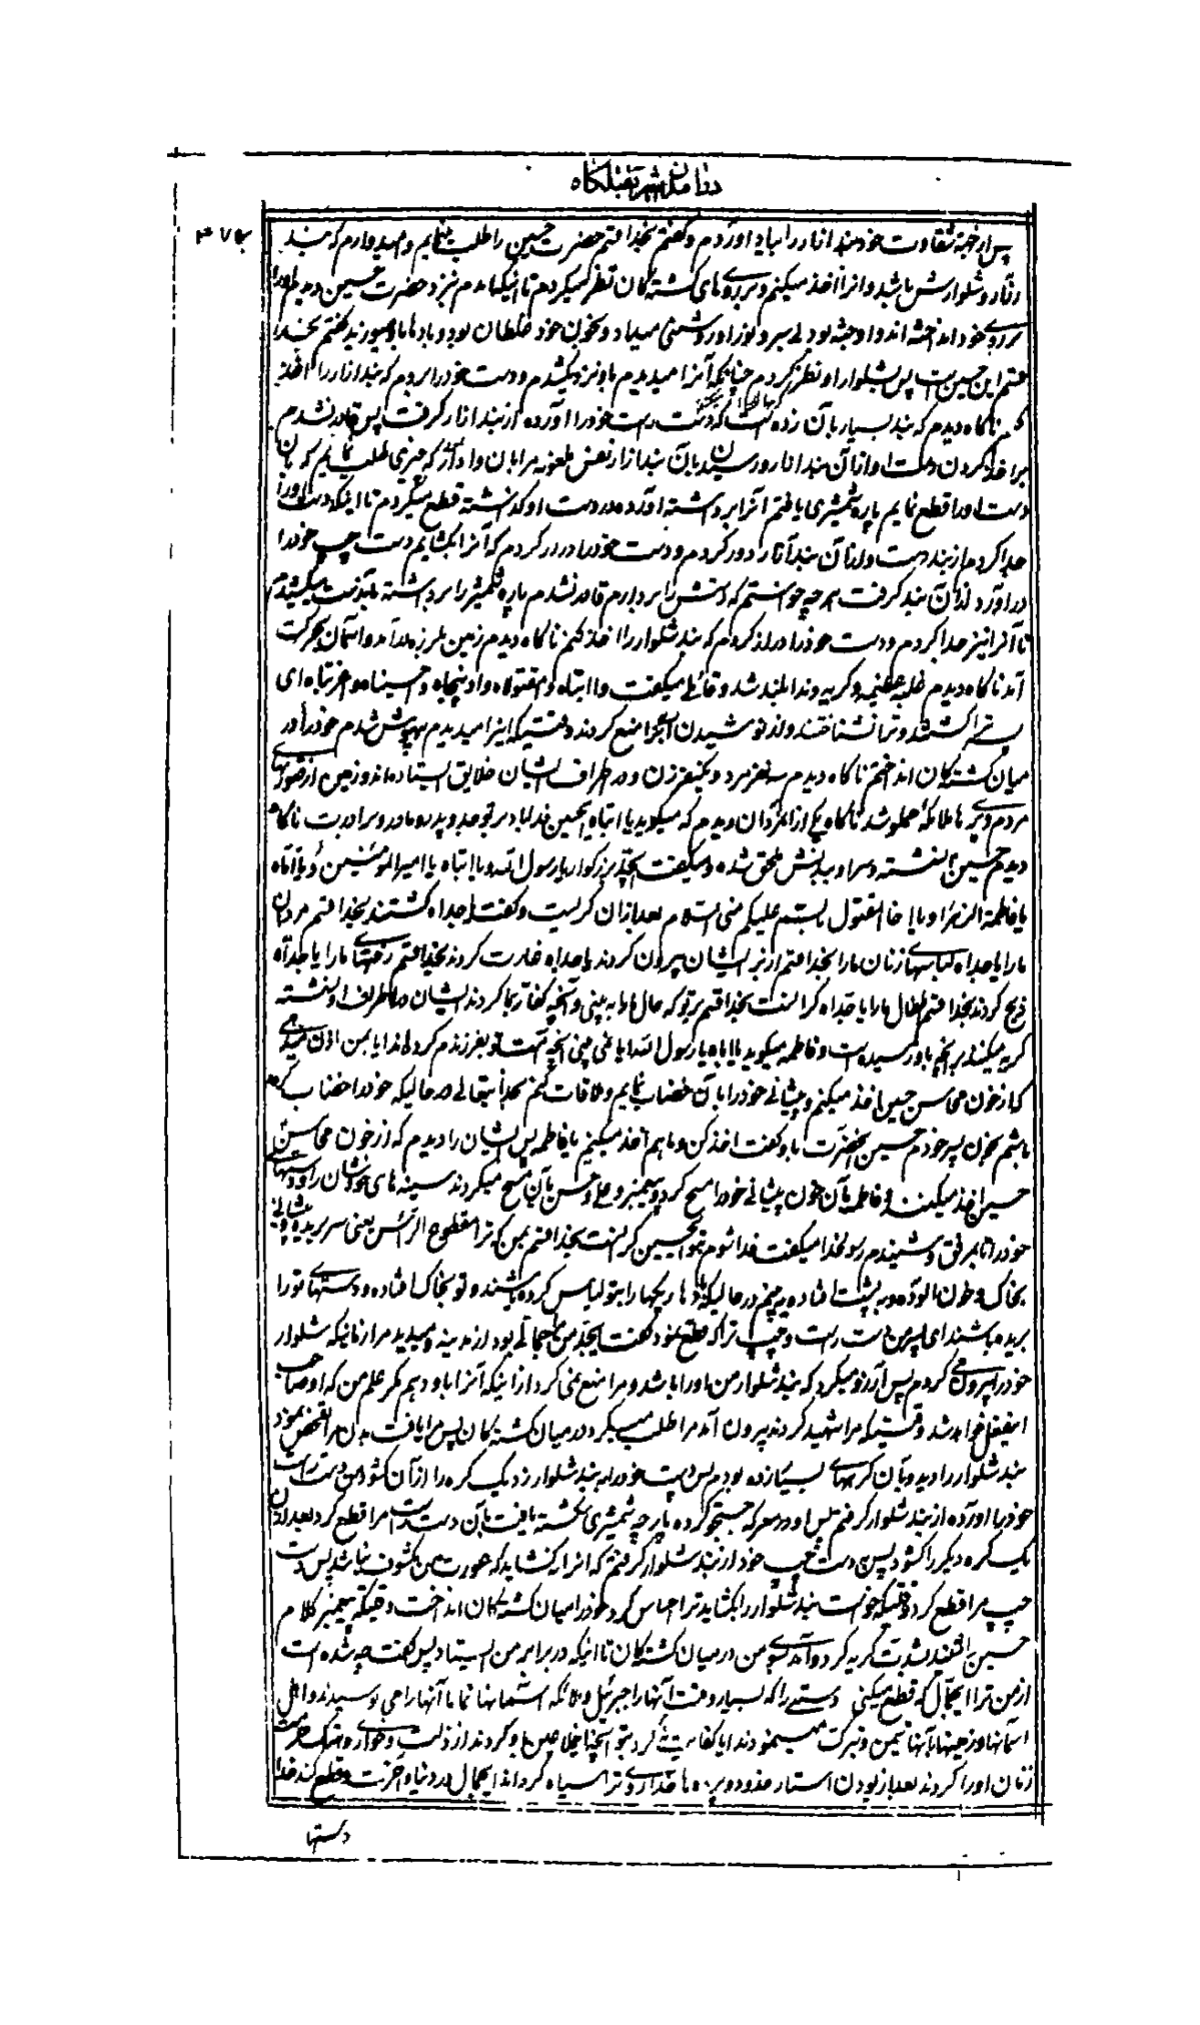 پس از جهة شقاوت خود بند ازار را بیاد اوردم و گفتم بخدا قسم حضرت حسین را طلب مینمایم و امیدوارم که بند
ازار و شلوارش باشد و انرا اخذ میکنم و بر روهای کشته کان نظر میکردم تا اینکه امدم نزد حضرت حسین دیدم اورا
بر روی خود انداخته اند و او جثه بود بی سر و نور او روشنی میداد و بخون خود غلطان بود و بادها باو میوزید گفتم بخدا
قسم این حسین است پس بشلوار او نظر کردم چنانکه آنرا میدیدم باو نزدیک شدم و دست خود را بردم که بند ازار را اخذ
کنم ناگاه دیدم که بند بسیار بآن زده است که دست راست خود را اورده از بند ازار گرفت پس قادر نشدم
بر اخذ کردن دست او از آن بند ازار و رسیدن بآن بند ازار نفس ملعونه مرا بآن وا داشت که چیزی طلب نمایم که بآن
دست اورا قطع نمایم پاره شمشیری یافتم آنرا برداشته اورده در دست او گذشته قطع میکردم تا اینکه دست اورا
جدا کردم از بند دست و از آن بند ازار دور کردم و دست خود را دراز کردم که آنرا بگشایم دست چپ خود را
در اورد از آن بند گرفت هر چه خواستم که دستش را بردارم قادر نشدم پاره شمشیر را برداشته
تا آنرا نیز جدا کردم و دست خود را دراز کردم که بند شلوار را اخذ کنم ناگاه دیدم زمین بلرزه در آمد و اسمان بحرکت
آمد ناگاه دیدم غلبه عظیمه و گریه و ندا بلند شد و قائلی میگفت وا ابناه و امقتولاه و اذبیحاه و احسیناه و اغریباه ای
پسر ترا کشتند و ترا نشناختند و از نوشیدن آب ترا منع کردند وقتیکه اینرا میدیدم بیهوش شدم خود را در
میان کشتگان انداختم ناگاه دیدم سه نفر مرد و یکنفر زن و در اطراف ایشان خلایق ایستاده اند و زمین از صورتهای
مردم و پرهای ملائکه مملو شد ناگاه یکی از انمردان دیدم که میگوید یا ابناه یا حسین فدا باد بر تو جد و پدر و مادر و برادرت ناگاه
دیدم حسین نشسته و سر او ببدنش ملحق شده و میگفت یا جد بزرگوار یا رسول الله و یا ابتاه یا امیر المؤمنین و یا اماه
یا فاطمة الزهرا و یا اخاه المقتول بالسم علیکم منی السلام بعد از آن گریست و گفت یا جداه کشتند بخدا قسم مردان
مارا یا جداه لباسهای زنان مارا بخدا قسم از بر ایشان بیرون کردند یا جداه غارت کردند بخدا قسم رختهای مارا یا جداه
ذبح کردند بخدا قسم اطفال مارا یا جداه گرانست بخدا قسم بر تو که حال مارا به بینی و آنچه کفار بما کردند ایشان در اطراف او نشسته
گریه میکنند بر آنچه باو رسیده است و فاطمه میگوید یا اباه یا رسول الله ایا نمی بینی آنچه امت تو بفرزندم کردند ایا بمن اذن میدهی
که از خون محاسن حسین اخذ میکنم و پیشانی خود را بآن خضاب نمایم و ملاقات کنم بخدایتعالی در حالیکه خود را خضاب کرده
باشم بخون پسر خودم حسین آنحضرت باو گفت اخذ کن و ما هم اخذ میکنیم یا فاطمه پس ایشان را دیدم که از خون محاسن
حسین اخذ میکنند و فاطمه بآن خون پیشانی خود را مسح کرد و پیغمبر و علی و حسن بآن مسح میکردند سینه های خودشان را و دستهای
خود را تا بمرفق و شنیدم رسولخدا میگفت فدا شوم بتو یا حسین گرانست بخدا قسم بمن که ترا مقطوع الرأس یعنی سر بریده به بینم و پیشانی
بخاک و خون الوده و به پشت افتاده به بینم در حالیکه ریگها را بتو لباس کرده باشند و تو بخاک افتاده و دستهای تورا
بریده باشند ای پسر من دست راست و چپ ترا که قطع نمود گفت یا جد من جمالی بود از مدینه و میدید مرا زمانیکه شلوار
خود را بیرون می کردم پس آرزو میکرد که بند شلوار من اورا باشد و مرا منع نمی کرد از اینکه آنرا باو دهم مگر علم من که او صاحب
اینفعل خواهد شد وقتیکه مرا شهید کردند بیرون آمد مرا طلب میکرد در میان کشته کان پس مرا یافت بدن مرا تفحص نمود
بند شلوار را دید و بآن گرههای بسیار زده بودم پس دست خود را به بند شلوار زد یک گره را از آن گشود من دست راست
خود را اورده از بند شلوار گرفتم پس او در معرکه جستجو کرده پارچه شمشیری شکسته یافت بآن دست راست مرا قطع کرد بعد از آن
یک گره دیگر را گشود پس دست چپ خود از بند شلوار گرفتم که انرا نگشاید که عورت من مکشوف نباشد پس دست
چپ مرا قطع کرد وقتیکه خواست بند شلوار را بگشاید ترا احساس کرد خود را میان کشته کان انداخت وقتیکه پیغمبر کلام
حسین را شنید بشدت گریه کرد و آمد بسوی من در میان کشته گان تا اینکه در برابر من ایستاد پس گفت چه شده است
از من ترا ای جمال که قطع میکنی دستی را که بسیار وقت آنها را جبرئیل و ملائکه اسمانها تماما آنها را می بوسیدند و اهل
اسمانها و زمینها بآنها تیمن و تبرک میجستند ایا کفایت نه کرد بتو آنچه ملاعین باو کردند از ذلت و خواری و هتک حرمت
زنان اورا کردند بعد از بودن استار خدا روی ترا سیاه گرداند ای جمال در دنیا و آخرت و قطع کند خدا
دستها